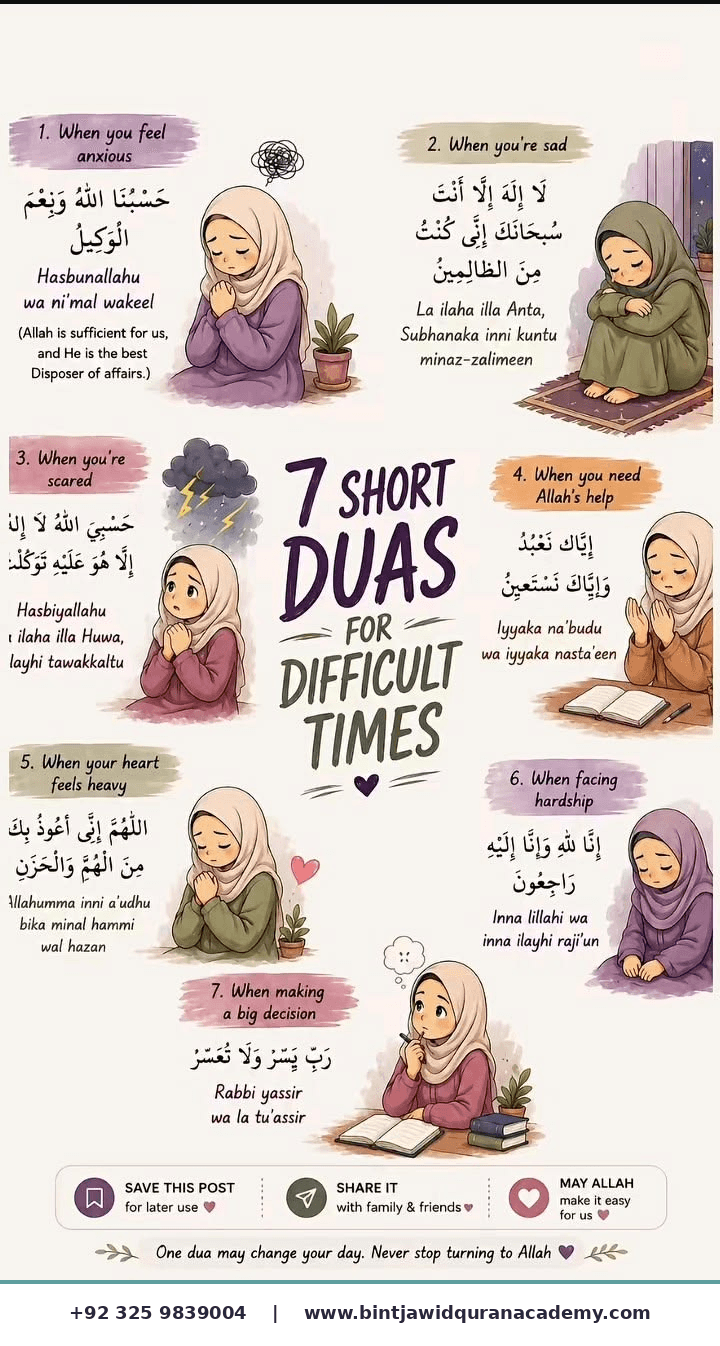 1. When you feel
anxious
حَسْبُنَا اللهُ وَنِعْمَ
الْوَكِيلُ
Hasbunallahu
wa ni'mal wakeel
(Allah is sufficient for us,
and He is the best
Disposer of affairs.)
2. When you're sad
لَا إِلَهَ إِلَّا أَنْتَ
سُبحَانَكَ إِنِّى كُنْتُ
مِنَ الظالِمِينُ
La ilaha illa Anta,
Subhanaka inni kuntu
minaz-zalimeen
3. When you're
scared
حَسْبِيَ اللهُ لَا
إِلَّا هُوَ عَلَيْهِ
Hasbiyallahu
ilaha illa Huwa,
layhi tawakkaltu
7 SHORT
DUAS
FOR
DIFFICULT
TIMES
4. When you need
Allah's help
إِيَّاك نَعْبُدُ
وَإِيَّاكَ نَسْتَعِينُ
Iyyaka na'budu
wa iyyaka nasta'een
5. When your heart
feels heavy
اللّٰهُمَّ إِنِّى أَعُوذُ بِكَ
مِنَ الْهُمِّ وَالْحَزَنِ
Allahumma inni a'udhu
bika minal hammi
wal hazan
6. When facing
hardship
إِنَّا لِلهِ وَإِنَّا إِلَيْهِ
رَاجِعُونَ
Inna lillahi wa
inna ilayhi raji'un
7. When making
a big decision
رَبِّ يَسِّرْ وَلَا تُعَسِّرْ
Rabbi yassir
wa la tu'assir
SAVE THIS POST
for later use
SHARE IT
with family & friends
MAY ALLAH
make it easy
for us
One dua may change your day. Never stop turning to Allah
+92 325 9839004 | www.bintjawidquranacademy.com